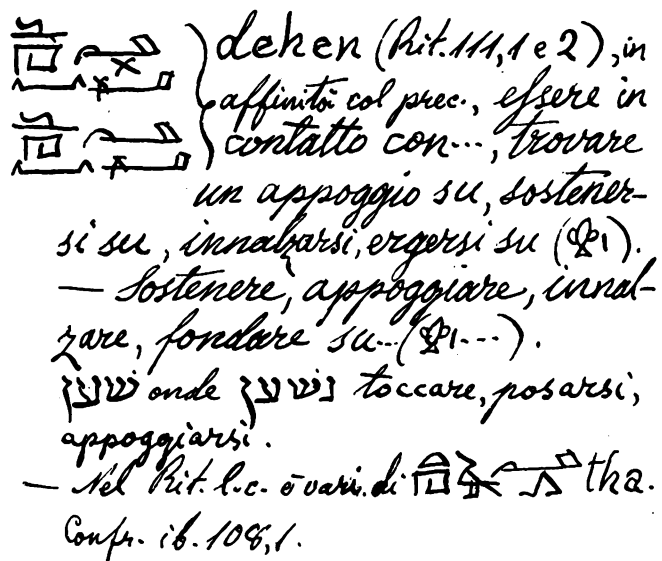 dehen (Rit. 111, 1 e 2), in
affinità col prec., essere in
contatto con..., trovare
un appoggio su, sostener-
si su, innalzarsi, ergersi su ( ).
— Sostenere, appoggiare, innal-
zare, fondare su...( ...).
שען onde נשען toccare, posarsi,
appoggiarsi.
— Nel Rit. l.c. è vari. di tha.
Confr. ib. 108, 1.